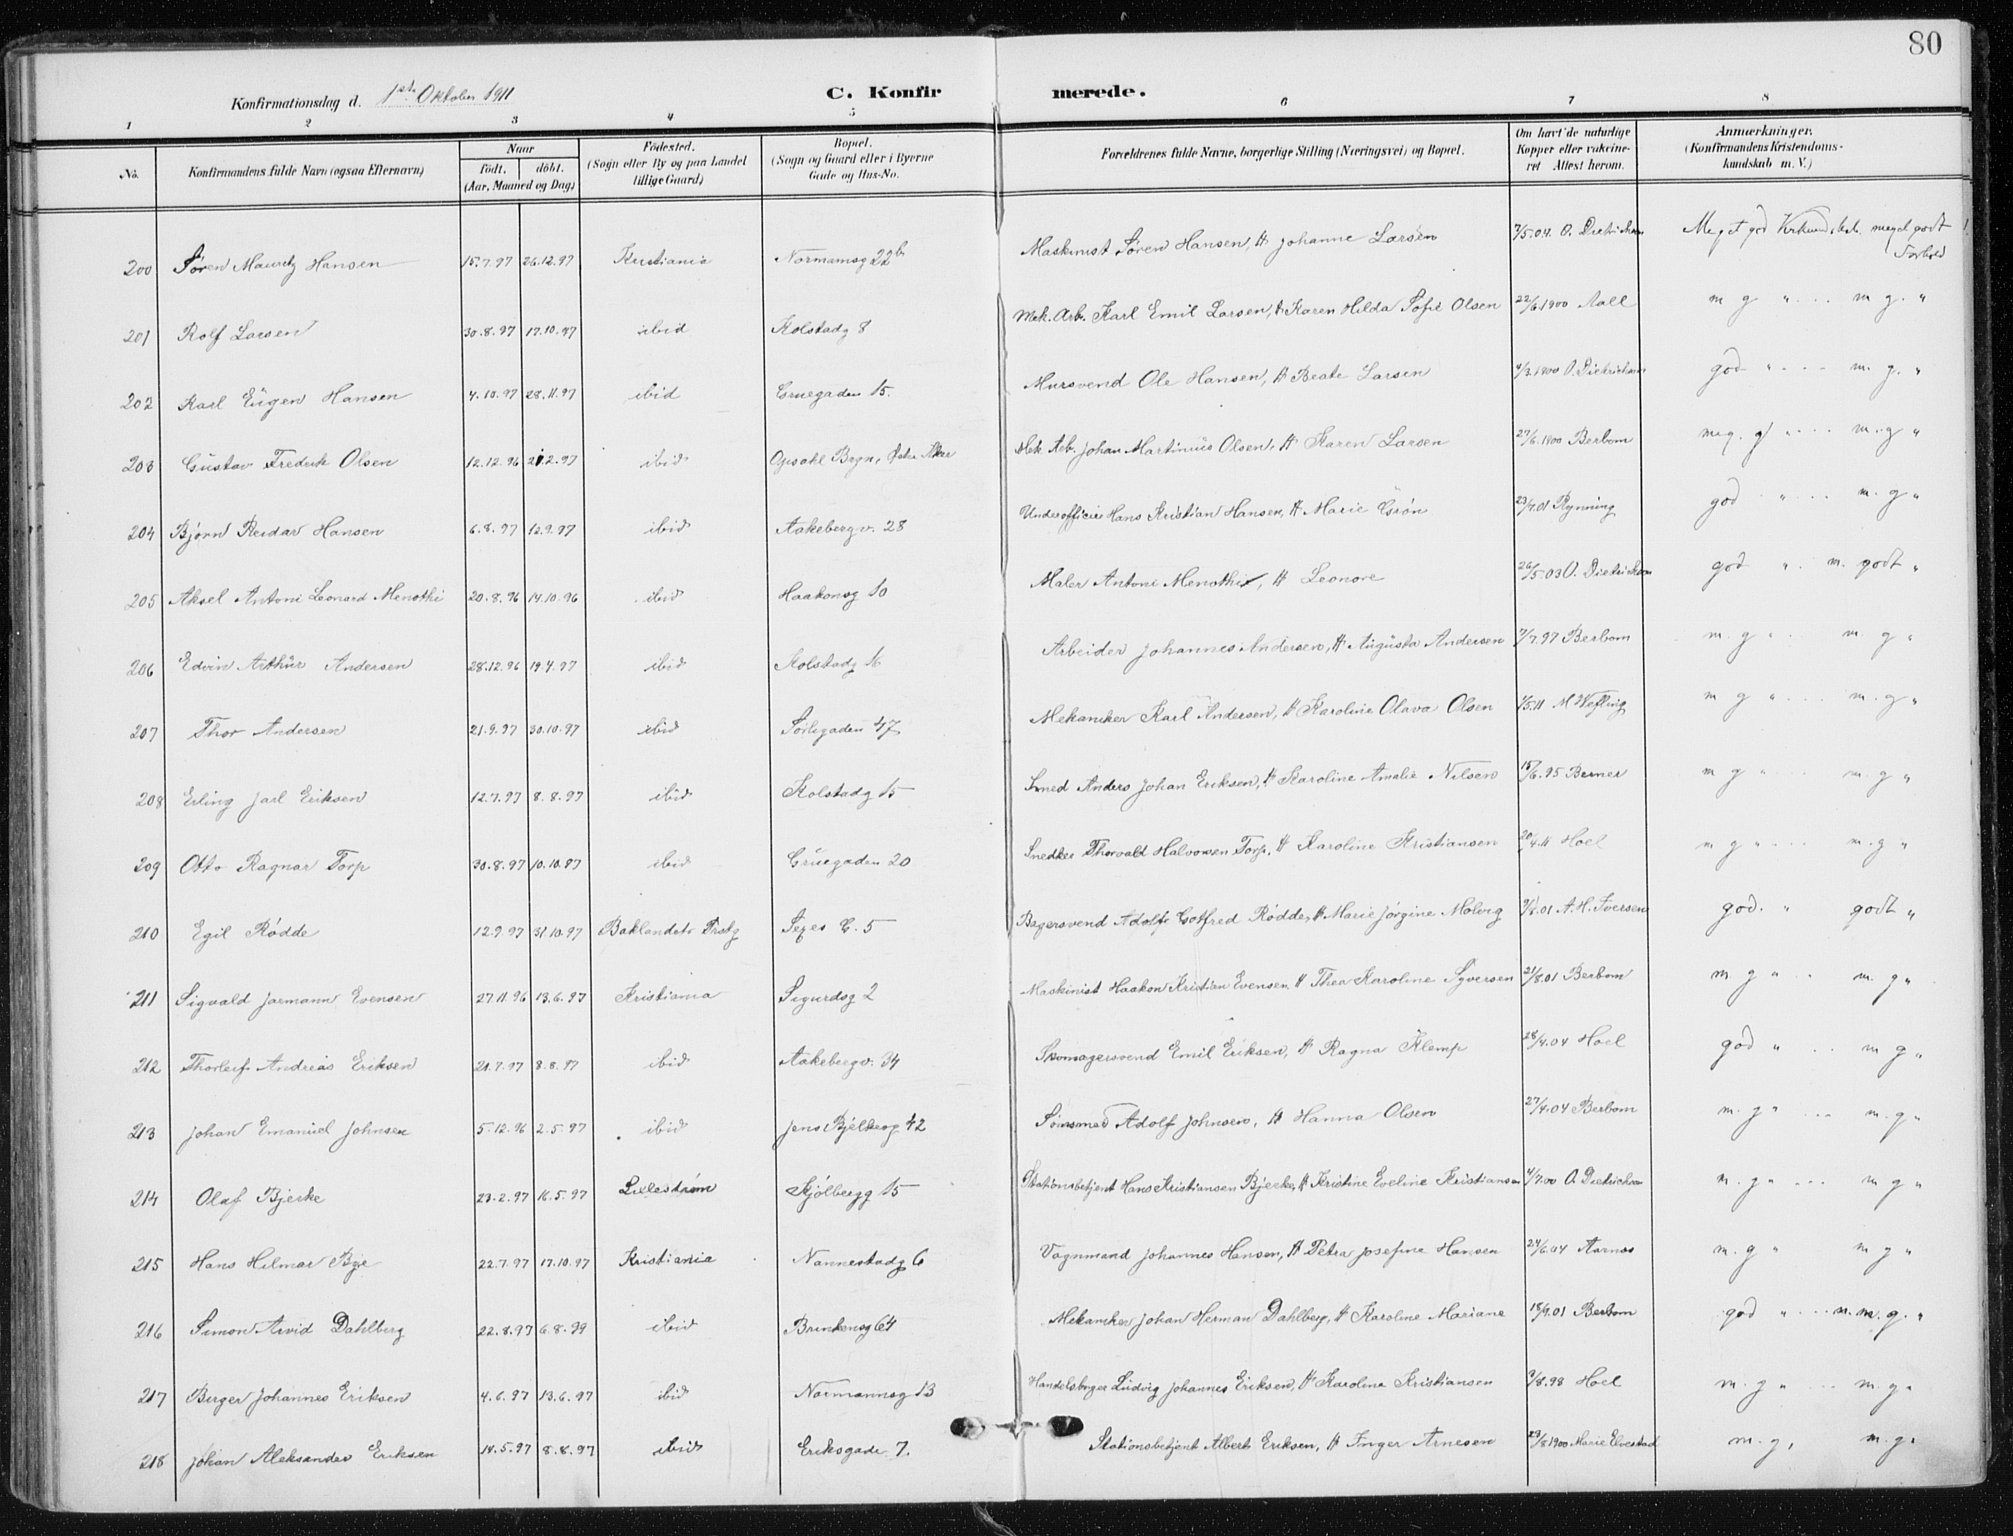 80
Konfirmationsdag d. 1ste Oktober 1911
C. Konfirmerede.
1 2 3 4 5 6 7 8
No. Konfirmandens fulde Navn (ogsaa Efternavn) Naar født. døbt. (Aar, Maaned og Dag) Fødested. (Sogn eller By og paa Landet tillige Gaard) Bopæl. (Sogn og Gaard eller i Byerne Gade og Hus-No. Forældrenes fulde Navne, borgerlige Stilling (Næringsvei) og Bopæl. Om havt de naturlige Kopper eller vakcineret Attest herom. Anmærkninger. (Konfirmandens Kristendomskundskab m. V.)
200 Søren Mauritz Hansen 15.7.97 26.12.97 Kristiania Normannsg 22b Maskinist Søren Hansen, H Johanne Larsen 7/5.04. O. Dietrichson Meget god meget godt Forhold
201 Rolf Larsen 30.8.97 17.10.97 ibid Kolstadg 8 Mek. Arb. Karl Emil Larsen, H Karen Hilda Sofie Olsen 22/6 1900 Aall m g " m g. "
202 Karl Eugen Hansen 4.10.97 28.11.97 ibid Gruegaden 15. Mursvend Ole Hansen, H Beate Larsen 1900 O. Dietrichson god " m. g. "
203 Gustav Fredrik Olsen 12.12.96 21.2.97 ibid Opsahl Bryn, Østre Aker Mek Arb. Johan Martinius Olsen, H Karen Larsen 27/6.1900 Berbom meg. g " m. g "
204 Bjørn Reidar Hansen 6.8.97 12.9.97 ibid Aakebergv. 28 Underofficier Hans Kristian Hansen, H Marie Grøn 23/7.01 Rynning god " m. g "
205 Aksel Antoni Leonard Menothi 20.8.96 14.10.96 ibid Haakonsg 10 Maler Antoni Menothi, H Leonore 26/5.03 O. Dietrichson god " m. godt "
206 Edvin Arthur Andersen 28.12.96 19.4.97 ibid Kolstadg 16 Arbeider Johannes Andersen, H Augusta Andersen 7/7.97 Berbom m. g " m. g "
207 Thor Andersen 21.9.97 30.10.97 ibid Sørligaden 47 Mekaniker Karl Andersen, H Karoline Olava Olsen 1/5.11 M Wefling m g " m. g "
208 Erling Jarl Eriksen 12.7.97 8.8.97 ibid Kolstadg 15 Smed Anders Johan Eriksen, H Karoline Amalie Nilsen 18/6.95 Berner m g " m. g "
209 Otto Ragnar Torp 30.8.97 10.10.97 ibid Gruegaden 20 Snedker Thorvald Halvorsen Torp, H Karoline Kristiansen 20/4.11 Hoel m g " m. g "
210 Egil Rødde 12.9.97 31.10.97 Baklandets Prstg Sexes G. 5 Bagersvend Adolf Gotfred Rødde, H Marie Jørgine Molvig 9/8.01 A. H. Iversen god. " godt "
211 Sigvald Jarmann Evensen 27.11.96 13.6.97 Kristiania Sigurdsg 2 Maskinist Haakon Kristian Evensen, H Thea Karoline Syversen 21/8.01 Berbom m. g " m. g "
212 Thorleif Andreas Eriksen 21.7.97 8.8.97 ibid Aakebergv. 34 Skomagersvend Emil Eriksen, H Ragna Klemp 28/4.04 Hoel god " m g "
213 Johan Emanuel Johnsen 5.12.96 2.5.97 ibid Jens Bjelkesg 42 Sømsmed Adolf Johnsen, H Hanna Olsen 27/4.04 Berbom m. g " m. g "
214 Olaf Bjerke 23.2.97 16.5.97 Lillestrøm Kjølbergg 15 Stationsbetjent Hans Kristiansen Bjerke, H Kristine Eveline Kristiansen 4/7.00 O. Dietrichson m. g " m g "
215 Hans Hilmar Bye 22.7.97 17.10.97 Kristiania Nannestadg 6 Vognmand Johannes Hansen, H Petra Josefine Hansen 24/6.04 Aarnes m. g " m g "
216 Simon Arvid Dahlberg 22.8.97 6.8.99 ibid Brinkensg 64 Mekaniker Johan Herman Dahlberg, H Karoline Mariane 18/9.01 Berbom god " m. g. "
217 Birger Johannes Eriksen 4.6.97 13.6.97 ibid Normannsg 13 Handelsborger Ludvig Johannes Eriksen, H Karoline Kristiansen 9/8.98 Hoel m. g " m. g "
218 Johan Aleksander Eriksen 14.5.97 8.8.97 ibid Eriksgade 7. Stationsbetjent Albert Eriksen, H Inger Arnesen 29/8 1900 Marie Elvestad m. g, m. g.